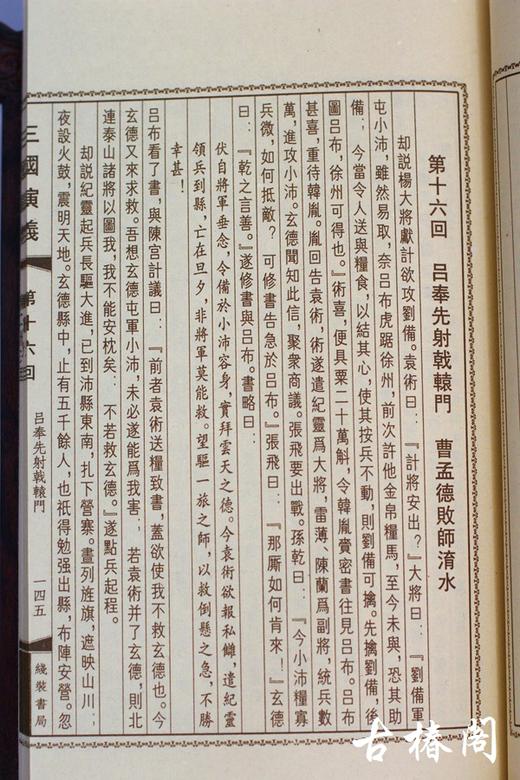 第十六回　呂奉先射戟轅門　曹孟德敗師淯水
却説楊大將獻計欲攻劉備。袁術曰：『計將安出？』大將曰：『劉備軍
屯小沛，雖然易取，奈吕布虎踞徐州，前次許他金帛糧馬，至今未與，恐其助
備；今當令人送與糧食，以結其心，使其按兵不動，則劉備可擒。先擒劉備，後
圖吕布，徐州可得也。』術喜，便具粟二十萬斛，令韓胤賫密書往見吕布。吕布
甚喜，重待韓胤。胤回告袁術，術遂遣紀靈爲大將，雷薄、陳蘭爲副將，統兵數
萬，進攻小沛。玄德聞知此信，聚衆商議。張飛要出戰。孫乾曰：『今小沛糧寡
兵微，如何抵敵？可修書告急於吕布。』張飛曰：『那厮如何肯來！』玄德
曰：『乾之言善。』遂修書與吕布。書略曰：
伏自將軍垂念，令備於小沛容身，實拜雲天之德。今袁術欲報私讎，遣紀靈
領兵到縣，亡在旦夕，非將軍莫能救。望驅一旅之師，以救倒懸之急，不勝
幸甚！
吕布看了書，與陳宫計議曰：『前者袁術送糧致書，蓋欲使我不救玄德也。今
玄德又來求救。吾想玄德屯軍小沛，未必遂能爲我害；若袁術并了玄德，則北
連泰山諸將以圖我，我不能安枕矣：不若救玄德。』遂點兵起程。
却説紀靈起兵長驅大進，已到沛縣東南，扎下營寨。晝列旌旗，遮映山川；
夜設火鼓，震明天地。玄德縣中，止有五千餘人，也衹得勉强出縣，布陣安營。忽
三國演義
第十六回
吕奉先射戟轅門
一四五
綫裝書局
古椿閣